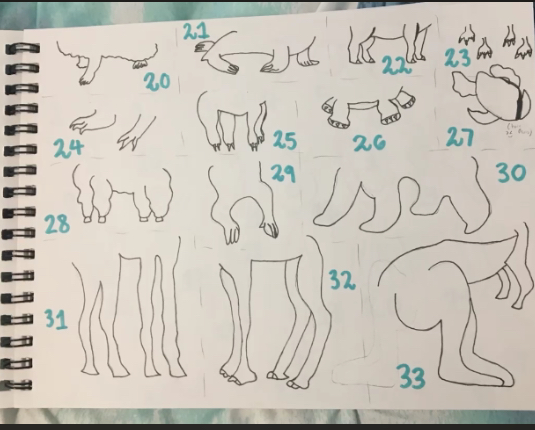 21
20
22
23
24
25
26
27
28
29
30
31
32
33